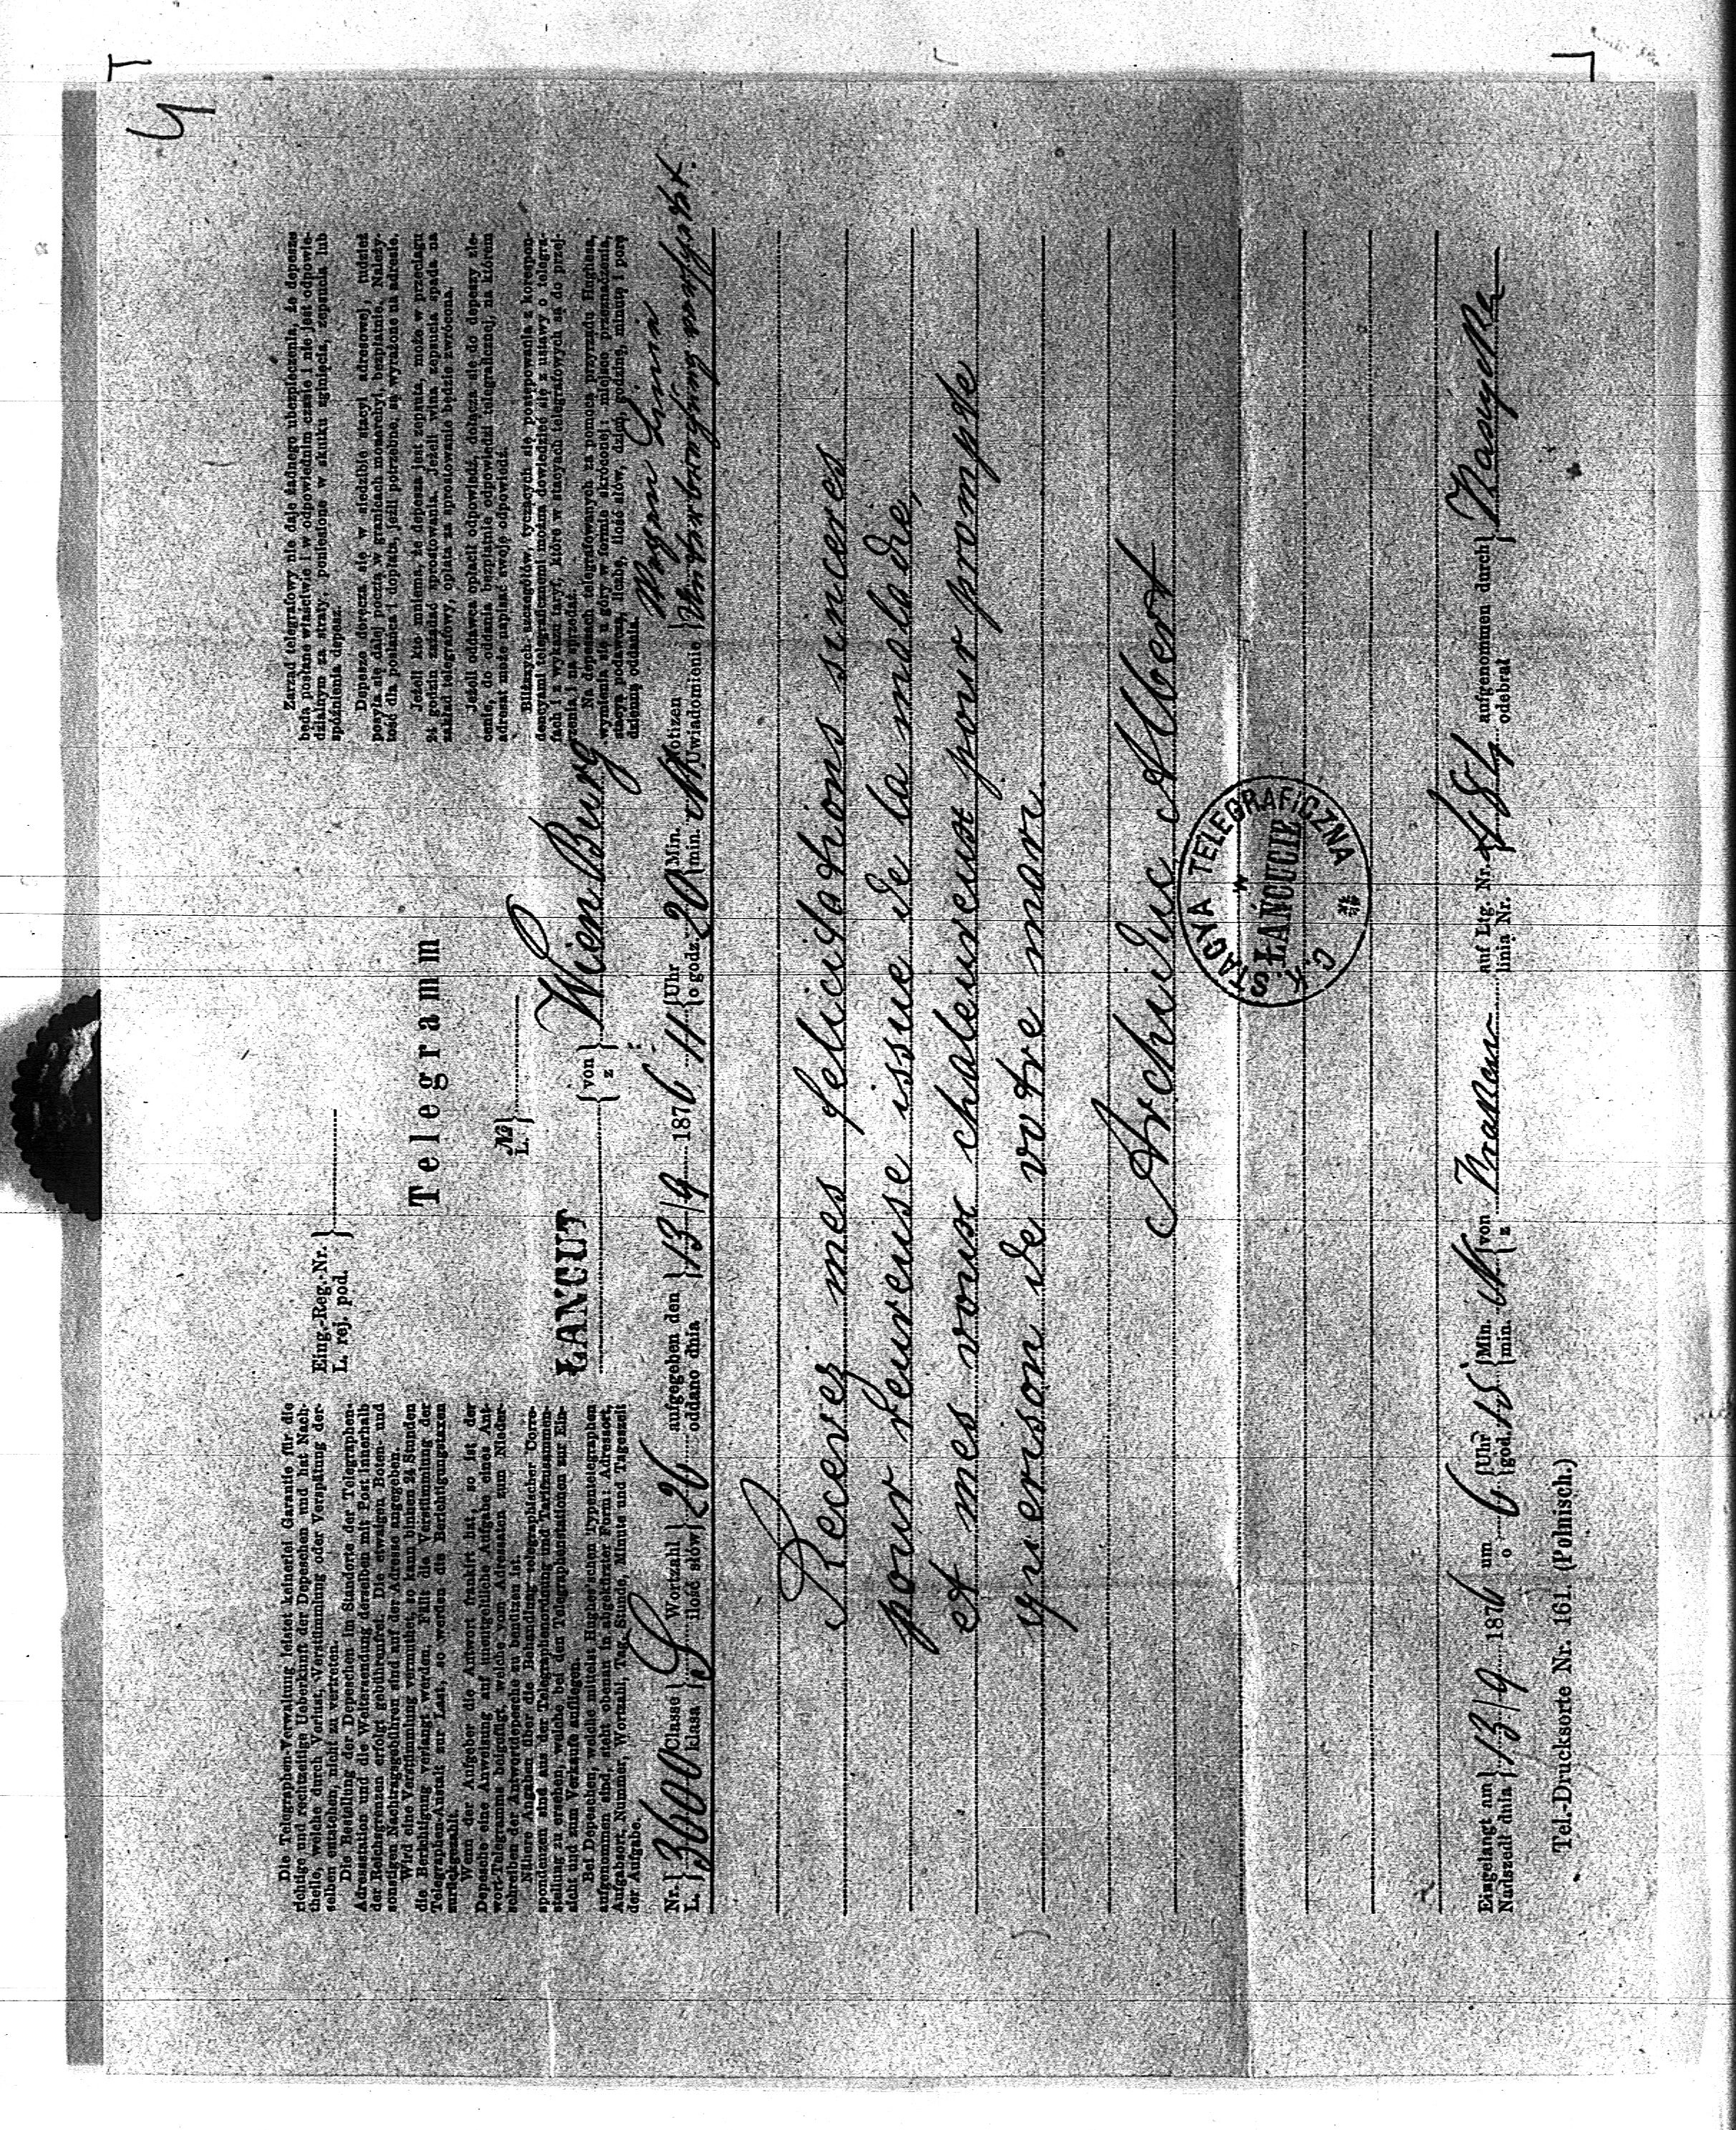 4
Die Telegraphen-Verwaltung leistet keinerlei Garantie für die
richtige und rechtzeitige Ueberkunft der Depeschen und hat Nach-
theile, welche durch Verlust, Verstümmlung oder Verspätung der-
selben entstehen, nicht zu vertreten.
Die Bestellung der Depeschen im Standorte der Telegraphen-
Adressstation und die Weitersendung derselben mit Post innerhalb
der Reichsgrenzen erfolgt gebührenfrei. Die etwaigen Boten- und
sonstigen Nachtragsgebühren sind auf der Adresse angegeben.
Wird eine Verstümmlung vermuthet, so kann binnen 24 Stunden
die Berichtigung verlangt werden. Fällt die Verstümmlung der
Telegraphen-Anstalt zur Last, so werden die Berichtigungstaxen
zurückgezahlt.
Wenn der Aufgeber die Antwort frankirt hat, so ist der
Depesche eine Anweisung auf unentgeltliche Aufgabe eines Ant-
wort-Telegramms beigefügt, welche vom Adressaten zum Nieder-
schreiben der Antwortdepesche zu benützen ist.
Nähere Angaben über die Behandlung telegraphischer Corre-
spondenzen sind aus der Telegraphenordnung und Tarifzusammen-
stellung zu ersehen, welche bei den Telegraphenstationen zur Ein-
sicht und zum Verkaufe aufliegen.
Bei Depeschen, welche mittelst Hughes'schen Typentelegraphen
aufgenommen sind, steht obenan in abgekürzter Form: Adressort,
Aufgabsort, Nummer, Wortzahl, Tag, Stunde, Minute und Tageszeit
der Aufgabe.
Eing.-Reg.-Nr.
L. rej. pod.
Telegramm
№
L.
ŁANCUT von z Wien Burg
Zarząd telegrafowy nie daje żadnego ubezpieczenia, że depesze
będą posłane właściwie i w odpowiednim czasie i nie jest odpowie-
dzialnym za straty, poniesione w skutku zginięcia, zepsucia lub
spóźnienia depesz.
Depesze doręcza się w siedzibie stacyi adresowej, tudzież
posyła się dalej pocztą w granicach monarchyi, bezpłatnie. Należy-
tość dla posłańca i dopłata, jeźli potrzebne, są wyrażone na adresie.
Jeżeli kto mniema, że depesza jest zepsuta, może w przeciągu
24 godzin zażądać sprostowania. Jeżeli wina zepsucia spada na
zakład telegrafowy, opłata za sprostowanie będzie zwrócona.
Jeżeli oddawca opłacił odpowiedź, dołącza się do depeszy zle-
cenie, do oddania bezpłatnie odpowiedzi telegraficznej, na którem
adresat może napisać swoję odpowiedź.
Bliższych szczegółów, tyczących się postępowania z korespon-
dencyami telegrafiornemi można dowiedzieć się z ustawy o telegra-
fach i z wykazu taryf, które w stacyach telegrafowych są do przej-
rzenia i na sprzedaż.
Na depeszach telegrafowanych za pomocą przyrządu Hughesa,
wymienia się u góry w formie skróconej: miejsce przeznaczenia,
stacyą podawczą, liczbę, ilość słów, dzień, godzinę, minutę i porę
dzienną oddania.
Nr. L. 3600 Classe klasa S Wortzahl ilość słów 26 aufgegeben den oddano dnia 13/9 1876 11 Uhr o godz. 20 Min. min. Notizen Uwiadomienie Wegen Linien
Unterbrechung verspätet.
Recevez mes felicitations sinceres
pour heureuse issue de la maladie,
et mes voeux chaleureux pour prompte
guerison de votre mari.
Archiduc Albert
C. K. STACYA TELEGRAFICZNA
w
ŁAŃCUCIE
Eingelangt am Nadszedł dnia 13/9 1876 um o 6 Uhr god. 15 Min. min. von z Krakau auf Ltg. Nr. linia Nr. aufgenommen durch odebrał
Tel.-Drucksorte Nr. 161. (Polnisch.)